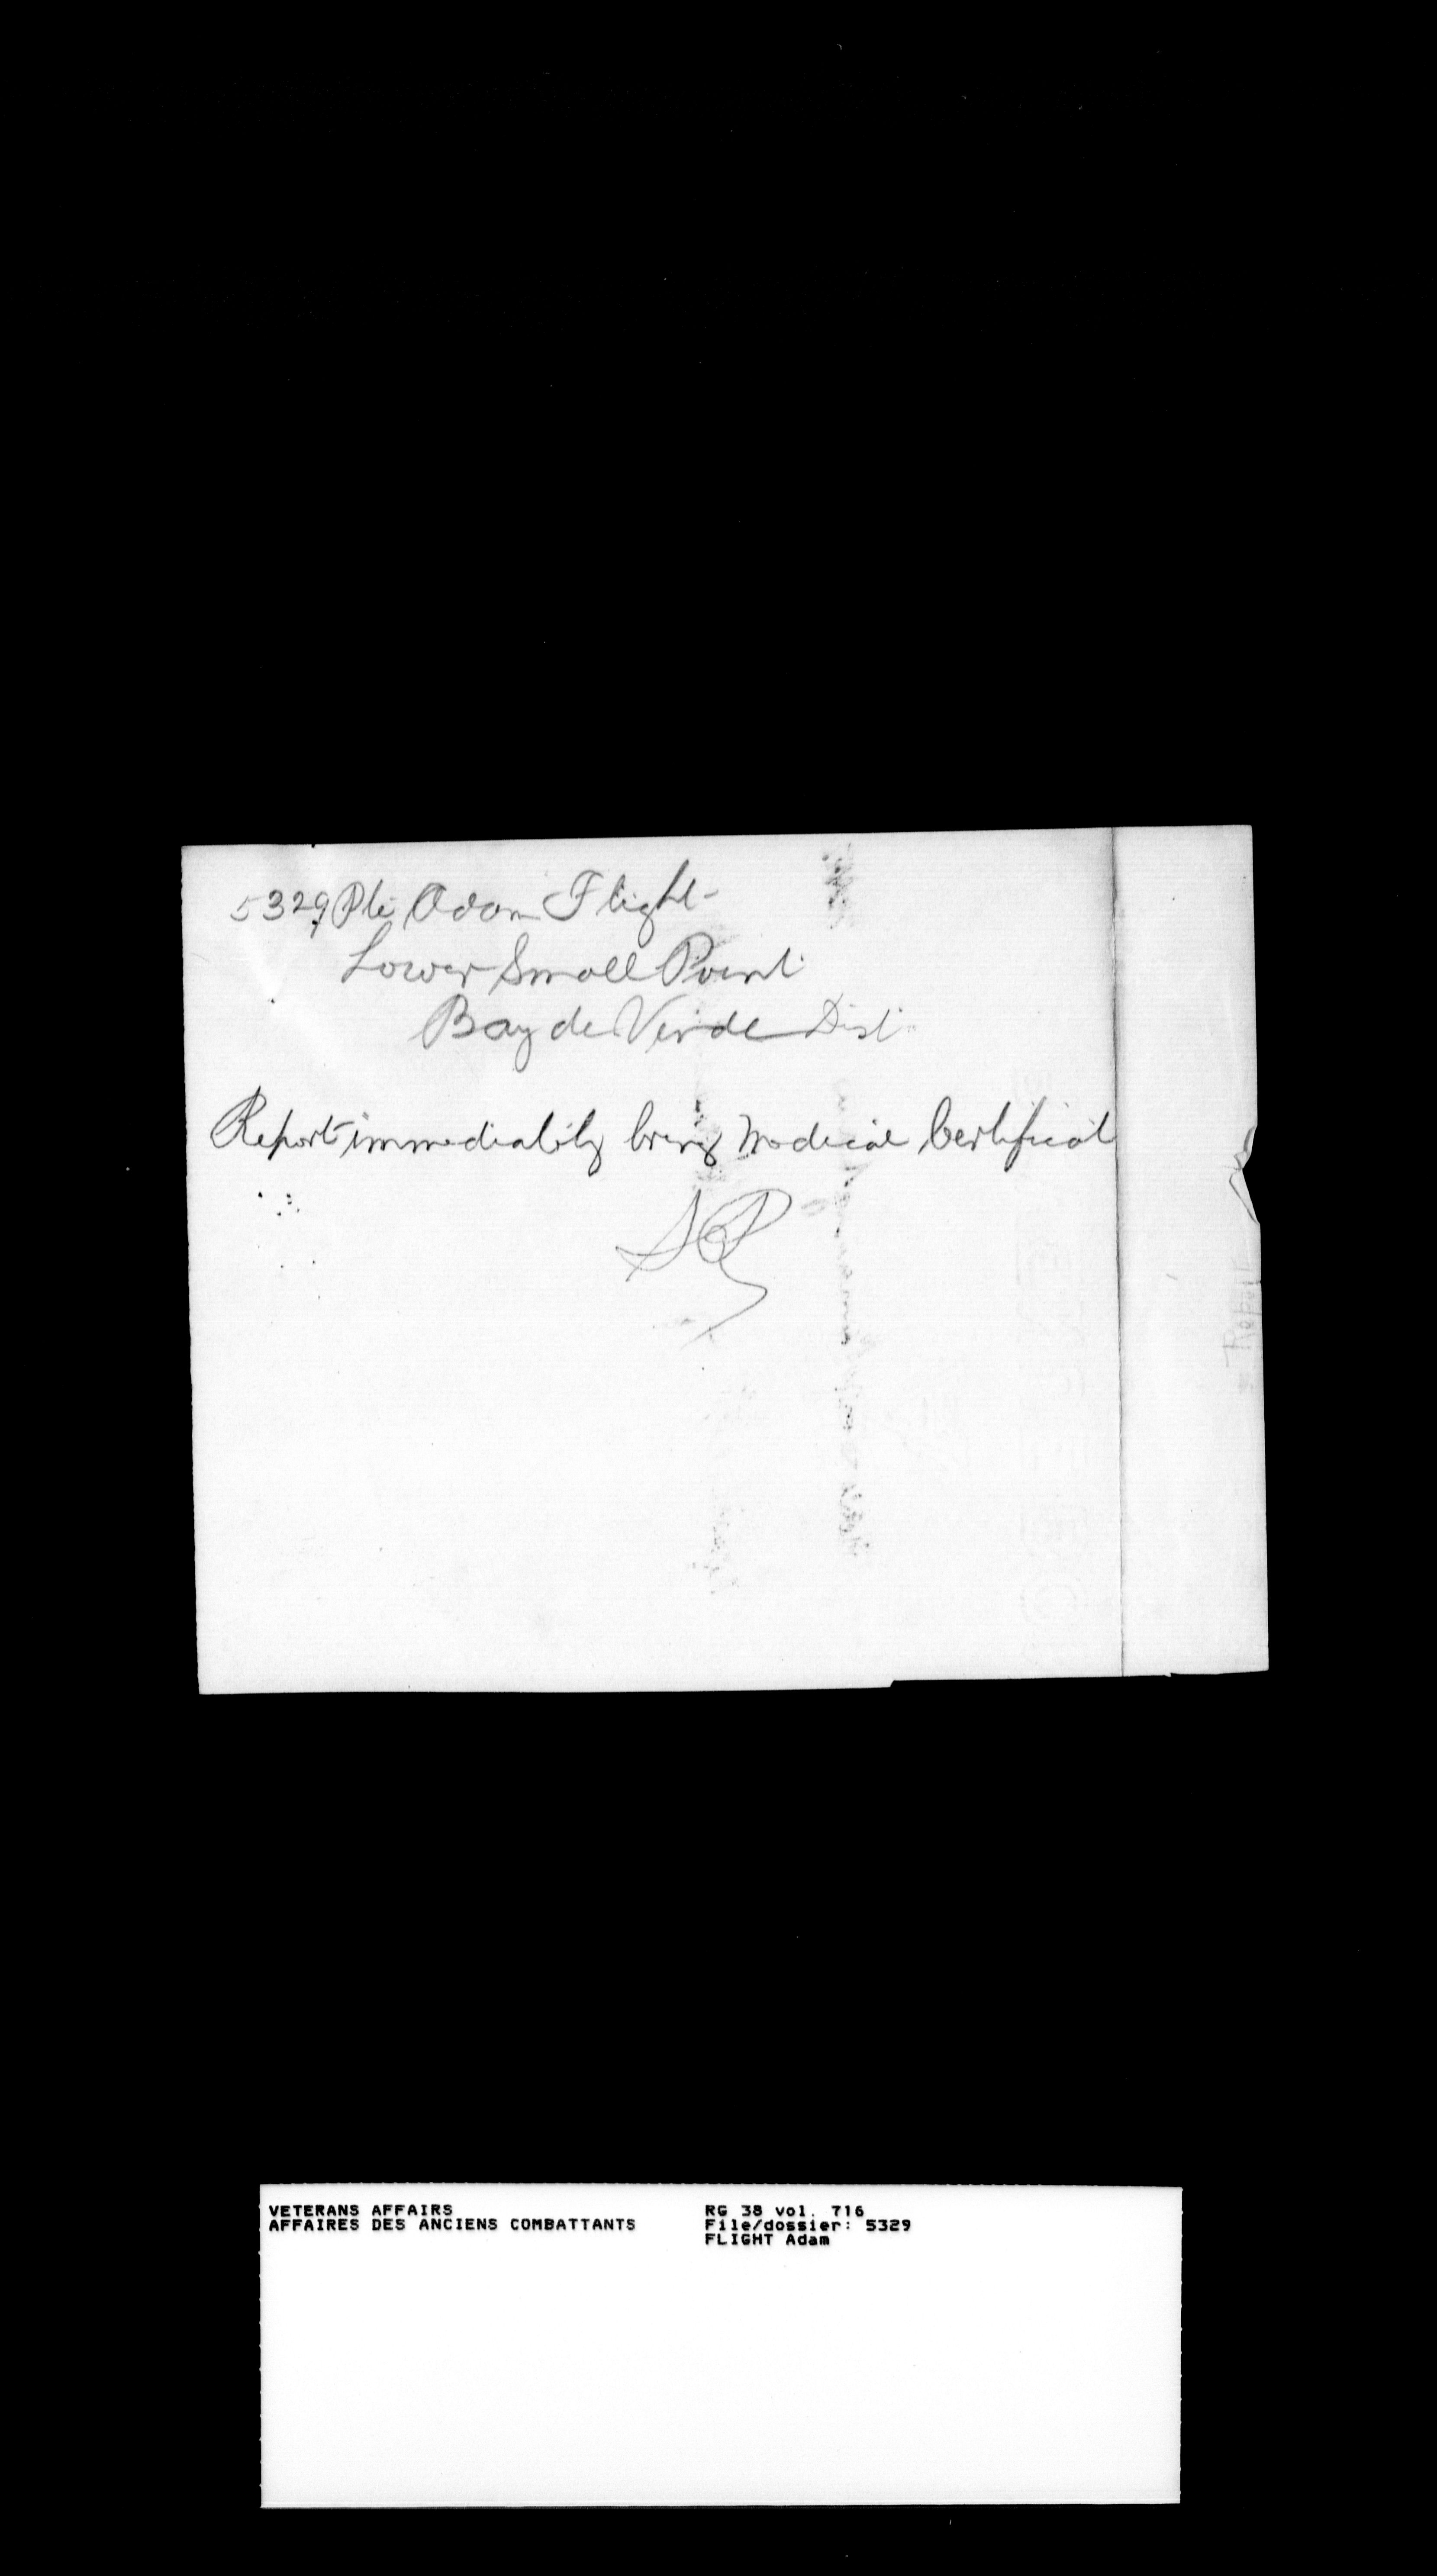 5329 Pte Adam Flight
Lower Small Point
Bay de Verde Dist.
Report immediatily bring Medical Certificat
VETERANS AFFAIRS RG 38 vol. 716
AFFAIRES DES ANCIENS COMBATTANTS File/dossier: 5329
FLIGHT Adam